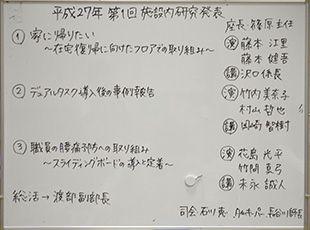 平成27年 第1回 施設内研究発表
座長・篠原主任
① 家に帰りたい
～在宅復帰に向けたフロアでの取り組み～
演 藤本 江里
藤本 健吾
講 沢口係長
② デュアルタスク導入後の事例報告
演 竹内美奈子
村山 哲也
講 岡崎 智樹
③ 職員の腰痛予防への取り組み
～スライディングボードの導入と定着～
演 花島 光平
竹間 真弓
講 末永 誠人
総括→ 渡部副部長
司会・石川
長谷川師長